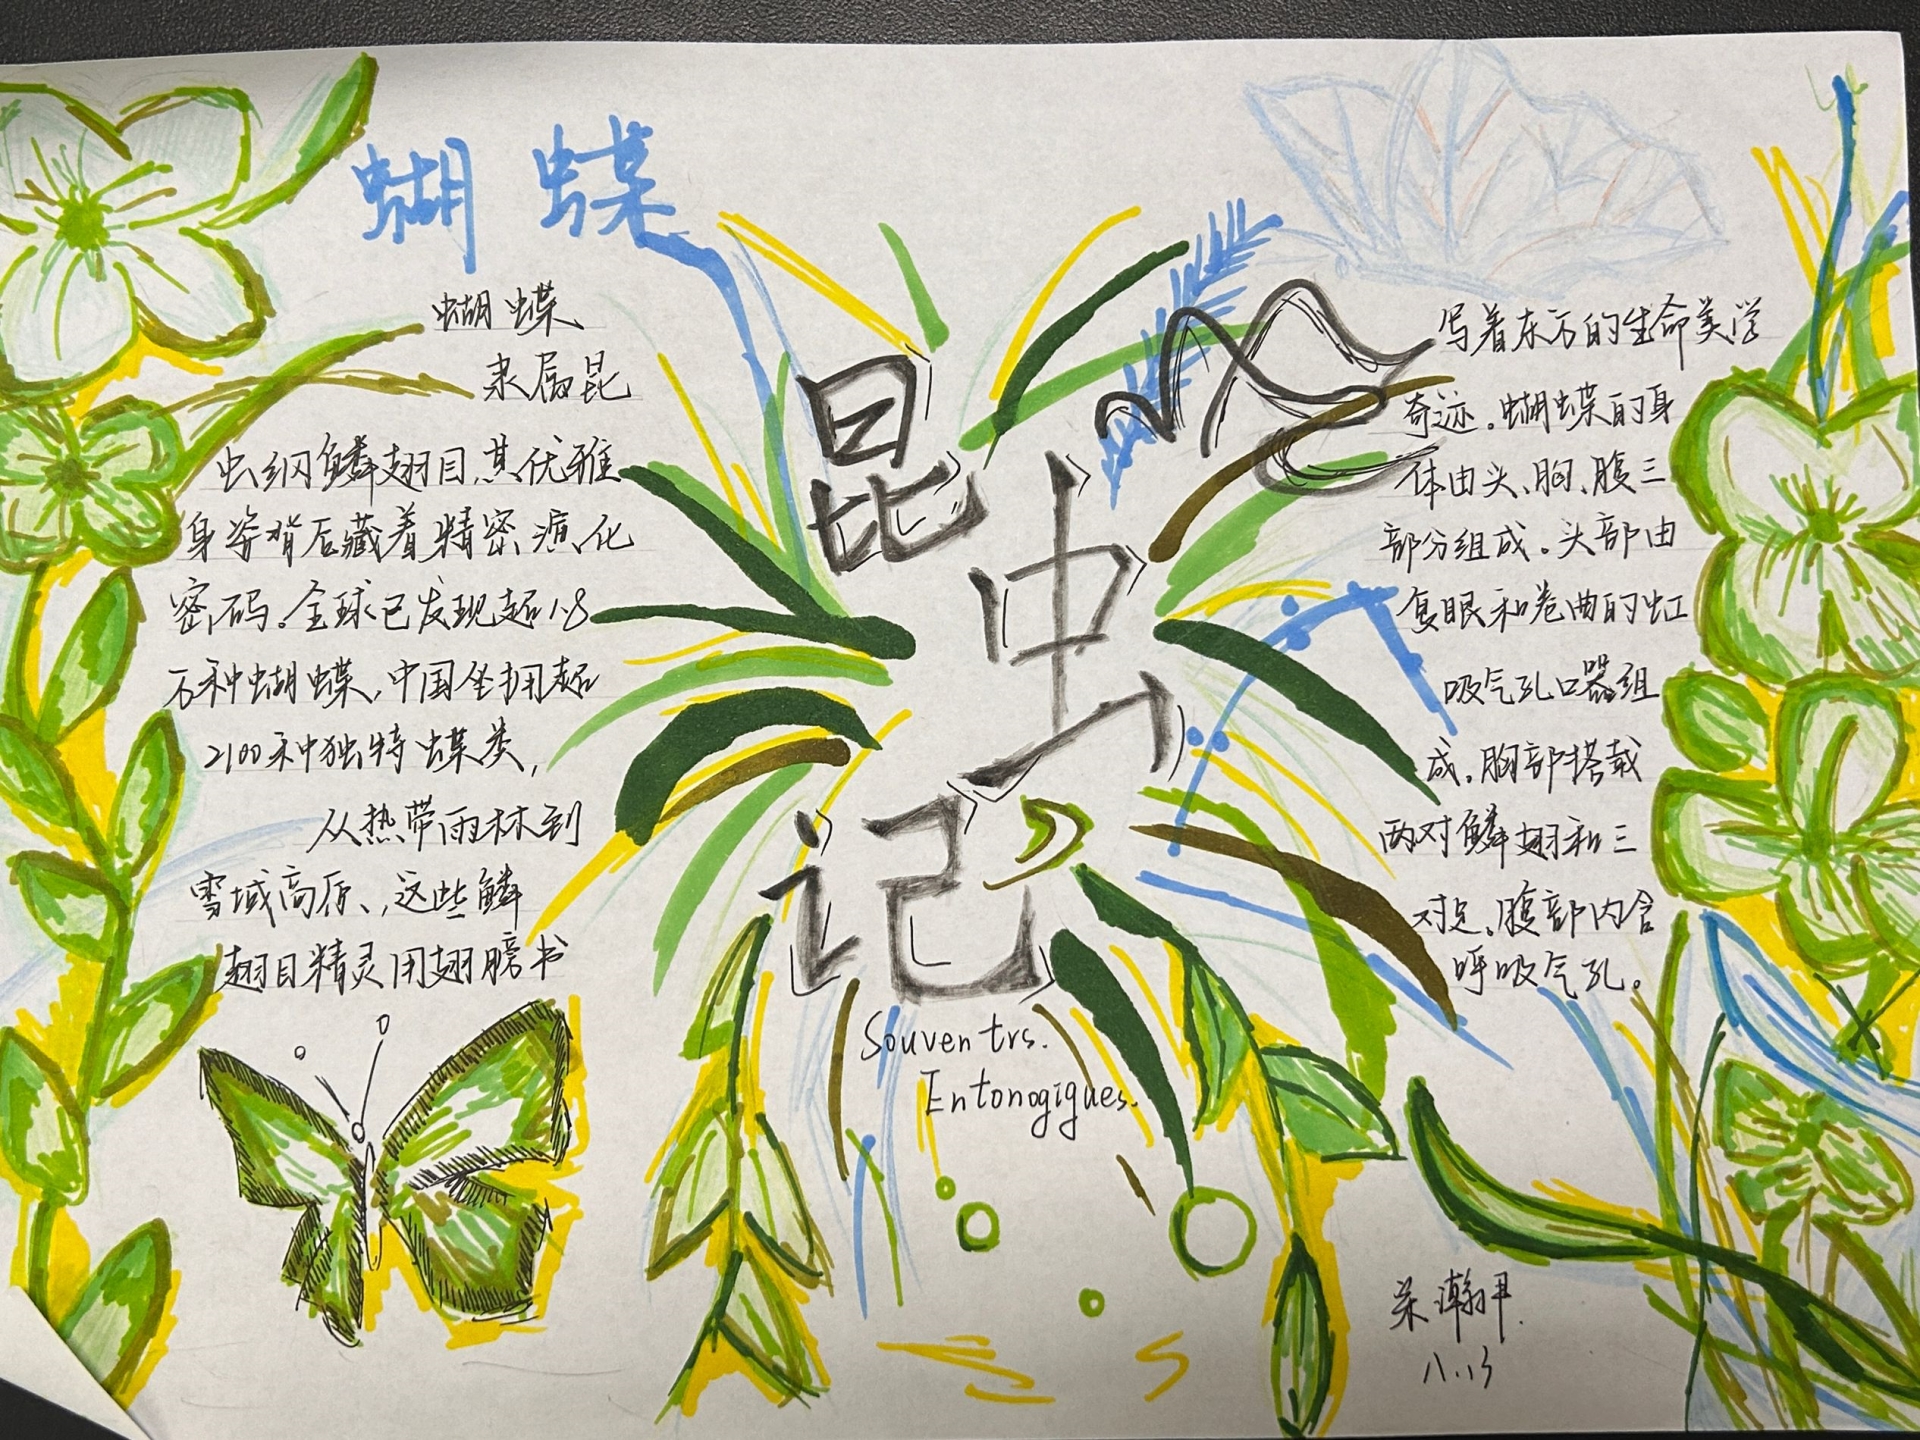 蝴蝶
蝴蝶
隶属昆
虫纲鳞翅目,其优雅
身姿背后藏着精密演化
密码。全球已发现超1.8
万种蝴蝶,中国坐拥超
2100种独特蝶类,
从热带雨林到
雪域高原、,这些鳞
翅目精灵用翅膀书
昆
虫
记
Souventrs.
Entonogigues.
写着东方的生命美学
奇迹。蝴蝶的身
体由头、胸、腹三
部分组成。头部由
复眼和卷曲的虹
吸气孔口器组
成,胸部搭载
两对鳞翅和三
对足。腹部内含
呼吸气孔。
八.13